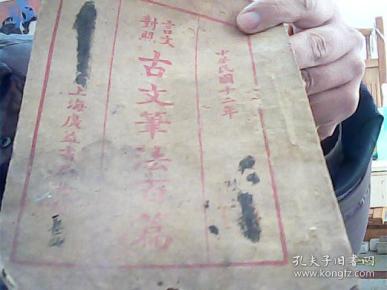 中華民國十二年
言文
對照
古文筆法百篇
上海廣益書局
孔夫子旧书网
www.kongfz.com